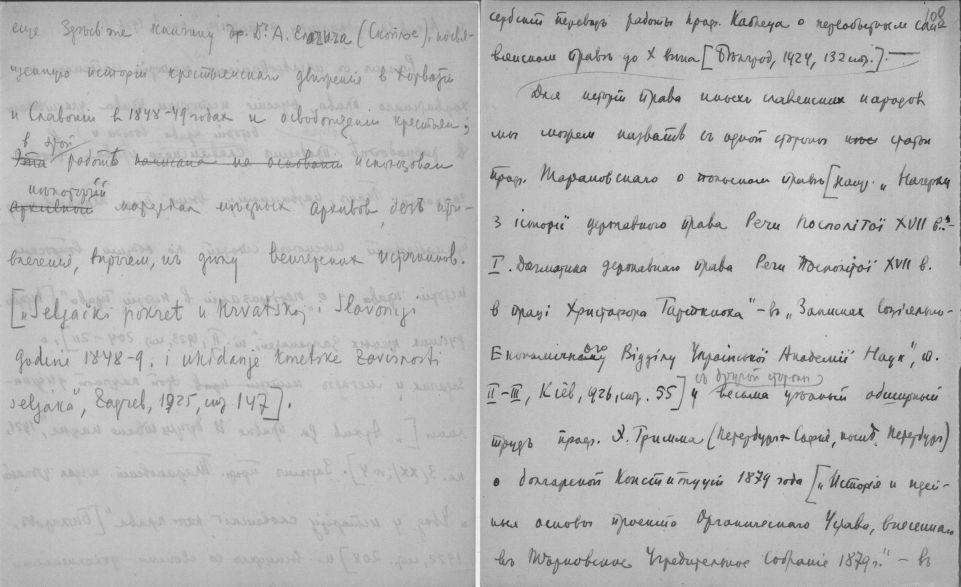 еще здѣсь же книжку др. Dr А. Еларича (Скопле), посвя-
щенную исторіи крестьянскаго движенія въ Хорватіи
и Славоніи въ 1848-49 годахъ и освобожденія крестьян;
в этой
Эта работѣ написана на основаніи использован
архивный матеріал мѣстных архивов, без при-
влеченія, впрочем, къ дѣлу венгерских источников.
["Seljački pokret u Hrvatskoj i Slavoniji
godine 1848-9. i ukidanje kmetske zavisnosti
seljaka", Zagreb, 1925, стр 147].
108
сербскій переводъ работы проф. Кадлеца о первобытном сла-
вянском правѣ до X вѣка [Бѣлград, 1924, 132 стр.].
Для исторіи права иных славянских народов
мы можем назвать съ одной стороны статью
проф. Тарановскаго о польском правѣ [
з історії державного права Речи Посполітої XVII в.-
I. Догматика державнаго права Речи Посполітої XVII в.
в праці Христофора - въ "Записках Соціяльно-
Економичного Відділу Української Академії Наук", т.
II-III, Київ, 1926, стр. 55] и съ другой стороны весьма цѣнный обширный
трудъ проф. Э. Гримма (Петербург-Софія, Петербург)
о болгарской Конституціи 1879 года ["Исторія и идей-
ныя основы проекта Органическаго Устава, внесеннаго
въ Тырновское Учредительное Собраніе 1879г." - въ